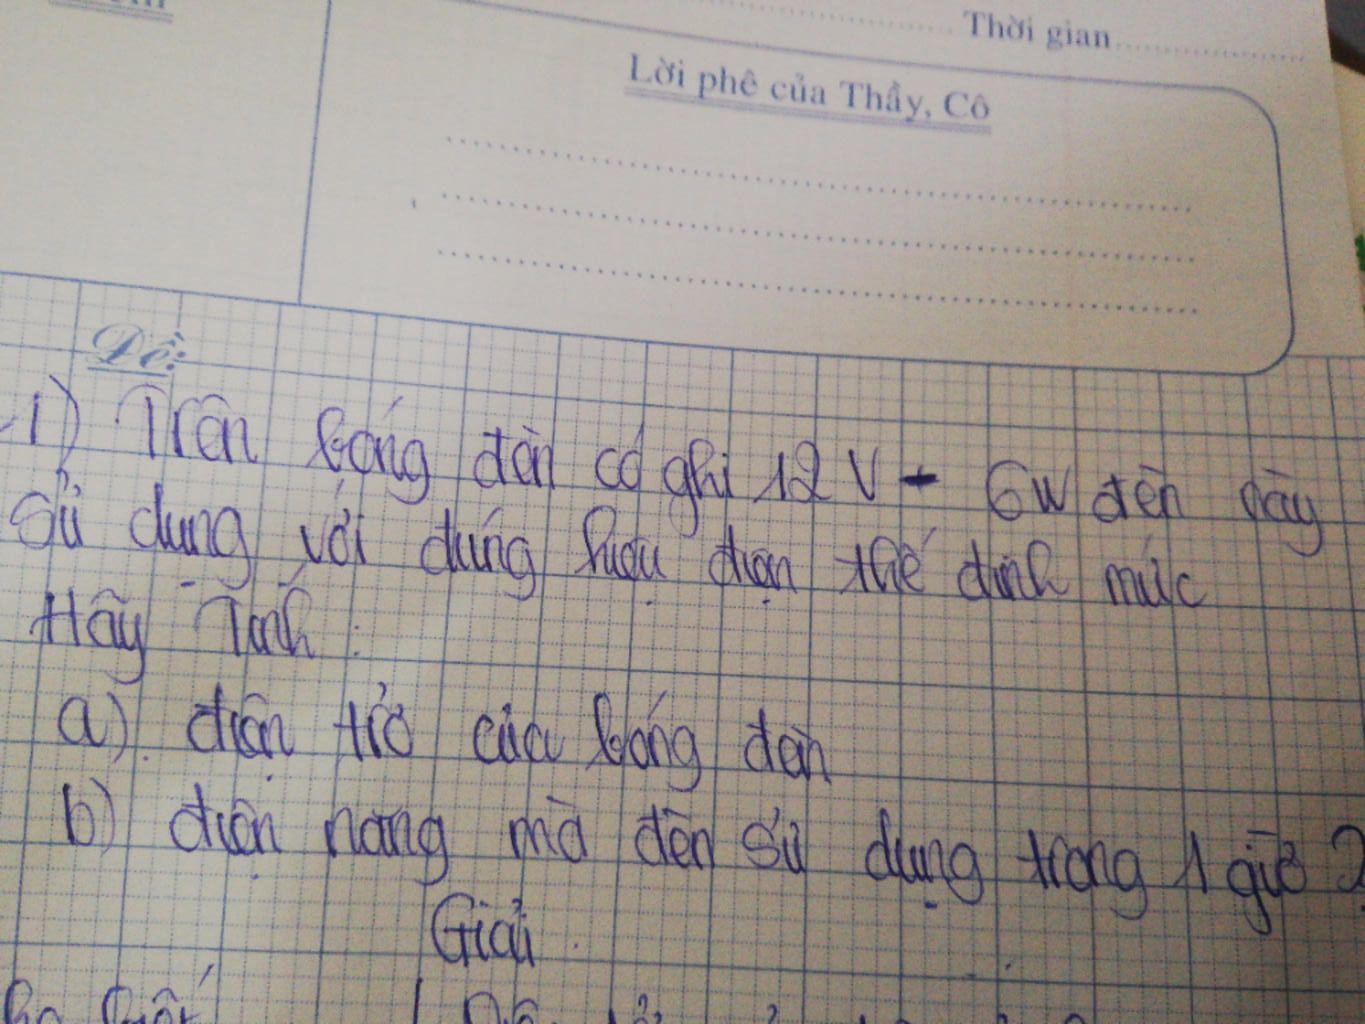 Thời gian
Lời phê của Thầy, Cô
Đề:
1) Trên bóng đèn có ghi 12 V - 6W đèn này
sử dụng với đúng hiệu điện thế định mức
Hãy Tính :
a) điện trở của bóng đèn
b) điện năng mà đèn sử dụng trong 1 giờ ?
Giải